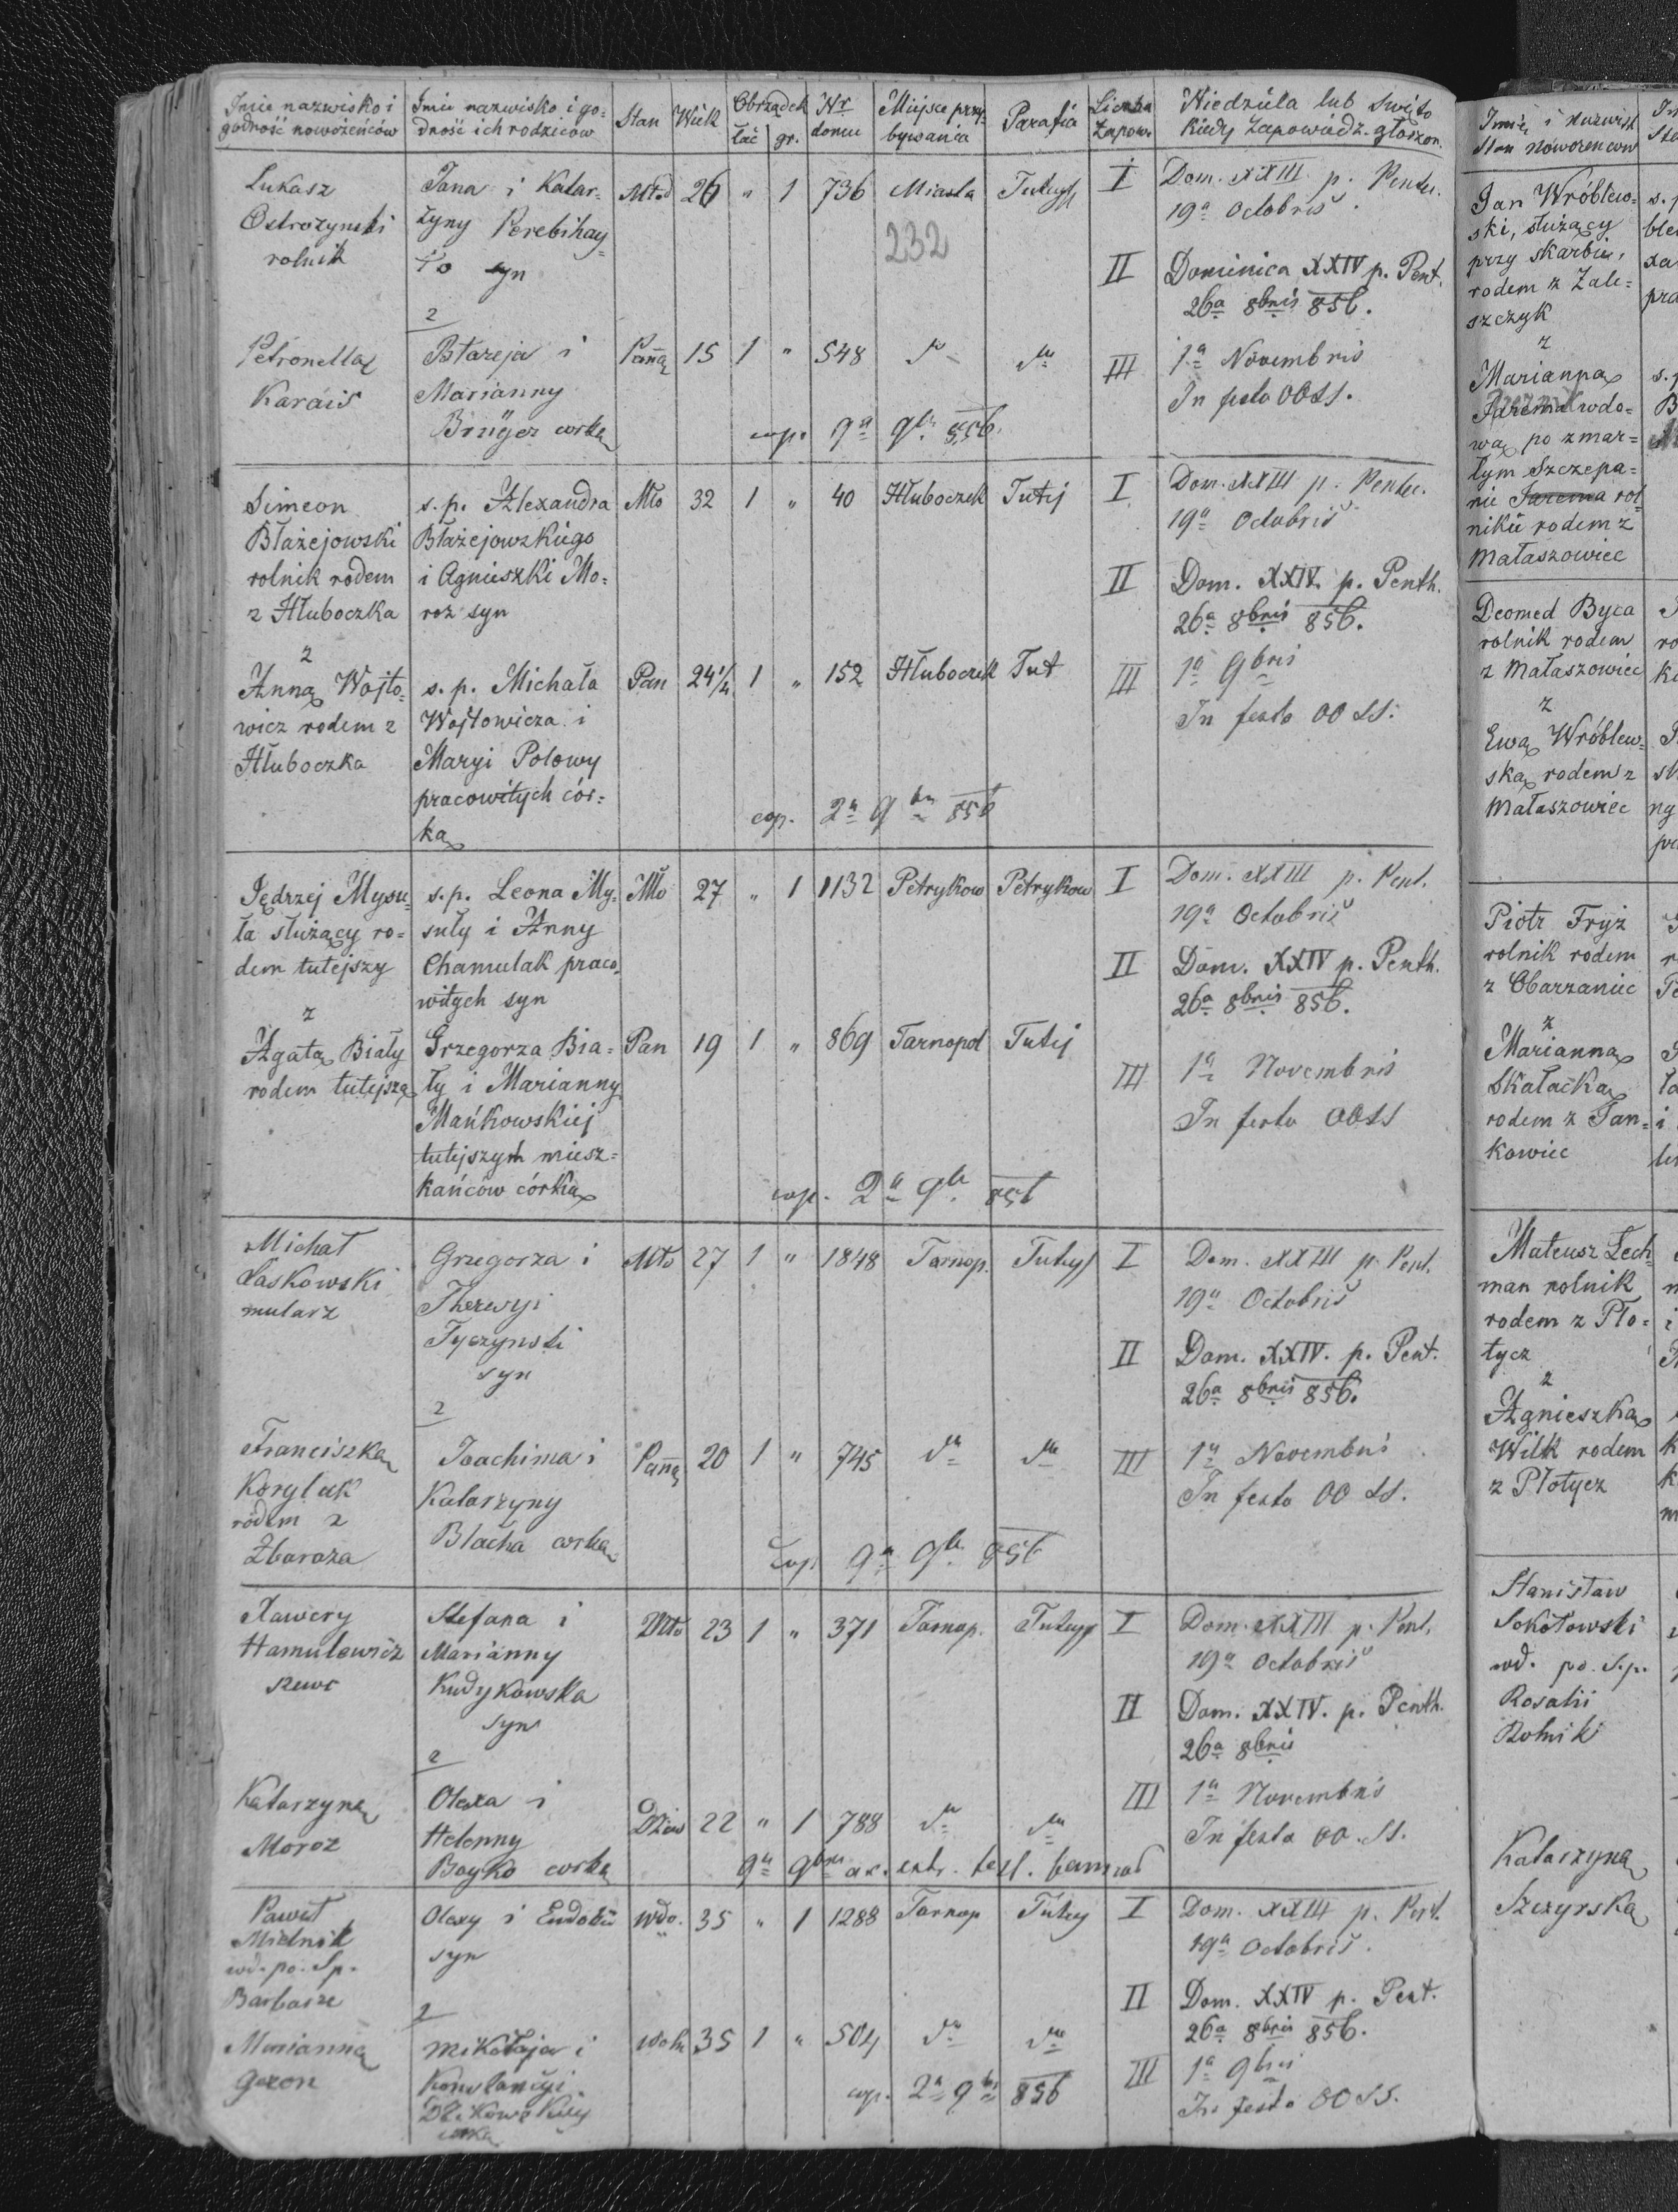 Imie nazwisko i godność nowożeńców
Imie nazwisko i godność ich rodziców
Stan
Wiek
Obrządek
łać gr.
Nr domu
Miejsce przybywania
Parafia
Liczba Zapow.
Niedziela lub Swięto
Kiedy Zapowiedź. głoszon.
Lukasz
Ostrożynski
rolnik
Jana i Katar=
żyny Perebihay=
ło syn
Młod 26 " 1 736 Miasta Tutejs
232
I Dom. XXIII p. Pentec.
19a Octobris
II Dominica XXIV p. Pent.
26a 8bris 856.
z
Petronellą
Karáis
Błazeja i
Marianny
Brüger corką
Panną 15 1 " 548 dto dto
III 1a Novembris
In festo OOSS.
cop. 9a 9br. 856.
Simeon
Błażejowski
rolnik rodem
z Hłuboczka
s. p. Alexandra
Błażejowskiego
i Agnieszki Mo=
roz syn
Mło 32 1 " 40 Hłuboczek Tutej
I Dom. XXIII p. Pentec.
19a Octobris
II Dom. XXIV p. Penth.
26a 8bris 856.
z
Anną Wojto=
wicz rodem z
Hłuboczka
s. p. Michała
Wojtowicza i
Maryi Polowy
pracowitych cór=
ką
Pan 24¼ 1 " 152 Hłuboczek Tut
III 1a 9bris
In festo OO SS.
cop. 2a 9br 856
Jędrzej Mysu=
ła służący ro=
dem tutejszy
s. p. Leona My=
suły i Anny
Chamulak praco=
witych syn
Mło 27 " 1 1132 Petrykow Petrykow
I Dom. XXIII p. Pent.
19a Octobris
II Dom. XXIV p. Penth.
26a 8bris 856.
z
Agatą Biały
rodem tutejszą
Grzegorza Bia=
ły i Marianny
Mańkowskiej
tutejszym miesz=
kańców córką
Pan 19 1 " 869 Tarnopol Tutej
III 1a Novembris
In festo OOSS
cop. 2a 9br. 856
Michał
Laskowski
mularz
Grzegorza i
Theresyi
Tyczynski
syn
Mło 27 1 " 1848 Tarnop. Tutejs
I Dom. XXIII p. Pent.
19a Octobris
II Dom. XXIV. p. Pent.
26a 8bris 856.
z
Franciszką
Korylak
rodem z
Zbaraża
Joachima i
Katarzyny
Blacha corką
Panną 20 1 " 745 dto dto
III 1a Novembris
In festo OO SS.
Cop 9a 9br 856
Xawery
Hamulewicz
szewc
Stefana i
Marianny
Kudykowska
syn
Mło 23 1 " 371 Tarnop. Tutejs
I Dom. XXIII p. Pent.
19a Octobris
II Dom. XXIV. p. Penth.
26a 8bris
z
Katarzyną
Moroz
Olexa i
Helenny
Bayko corką
Dziew 22 " 1 788 dto dto
III 1a Novembris
In festo OO. SS.
9a 9bris ac. extr. test.
Paweł
Mielnik
wd. po. Sp.
Barbarze
Olexy i Eudokii
syn
Wdo. 35 " 1 1288 Tarnop Tutej
I Dom. XXIII p. Pent.
19a Octobris.
II Dom. XXIV p. Pent.
26a 8bris 856.
z
Marianną
Gozon
Mikołaja i
Konstancyi
corką
Wdo 35 1 " 504 dto dto
III 1a 9bris
In festo OO SS.
cop. 2a 9bris 856
Imie i nazwisk
Stan Noworencow
Jan Wróblew=
ski, służący
przy Skarbie,
rodem z Zale=
szczyk
z
Marianną
Jarema wdo=
wą po zmar=
łym Szczepa=
nie Jarema rol
niku rodem z
Małaszowiec
Deomed Byca
rolnik rodem
z Małaszowiec
z
Ewą Wróblew=
ską rodem z
Małaszowiec
Piotr Fryz
rolnik rodem
z Obarzaniec
z
Marianną
Skałacką
rodem z Jan=
kowiec
Mateusz Lech
man rolnik
rodem z Pło=
tycz
z
Agnieszką
Wilk rodem
z Płotycz
Stanisław
Sokołowski
wd. po. S.p.
Rosalii
Rolnik
Katarzyną
Szczyrską